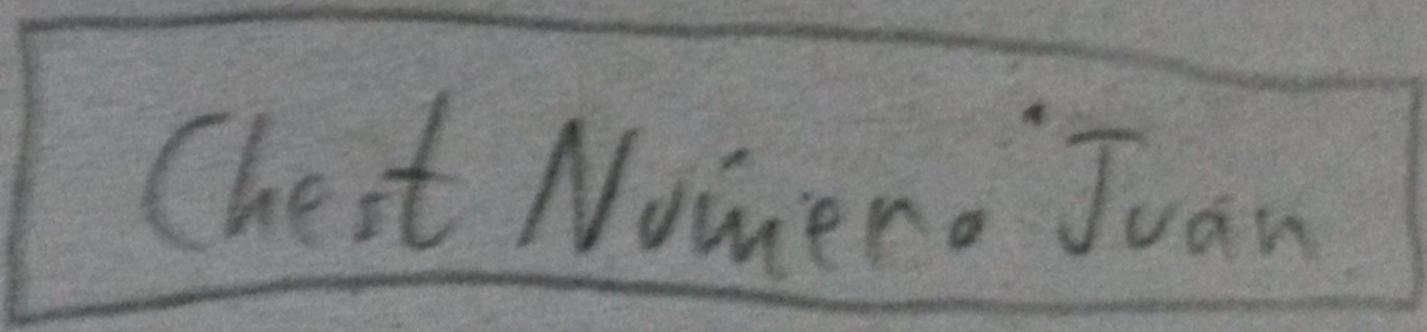 Chest Número Juan